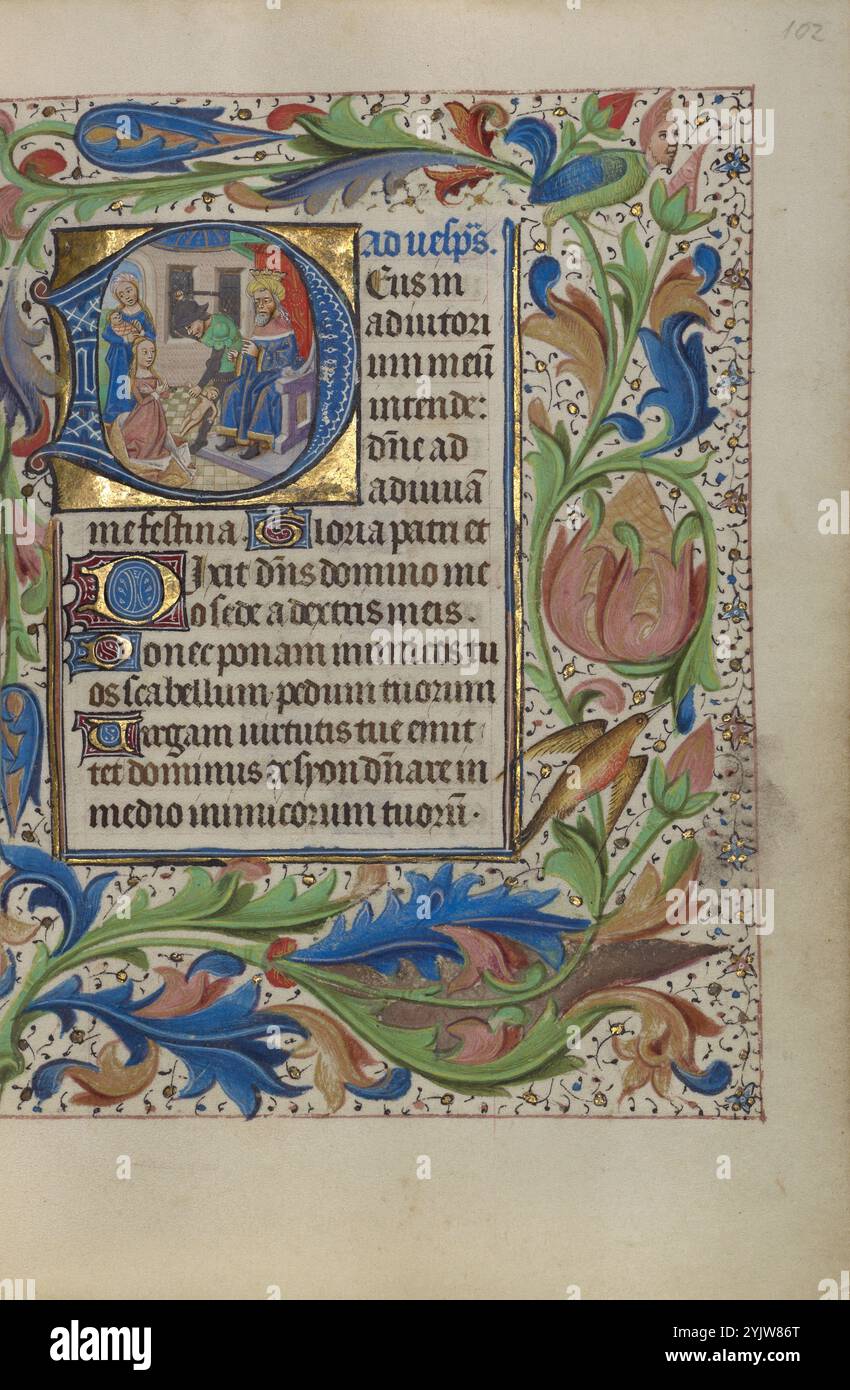 102
ad uesp̄s.
Eus in
adiutori
um meū
intende:
dn̄e ad
adiuuā
me festina. Gloria patri et
Dixit dn̄s domino me
o sede a dextris meis.
Donec ponam inimicos tu
os scabellum pedum tuorum
Uirgam uirtutis tue emit
tet dominus ex syon dn̄are in
medio inimicorum tuorū.
alamy
Image ID: 2YJW86T
www.alamy.com